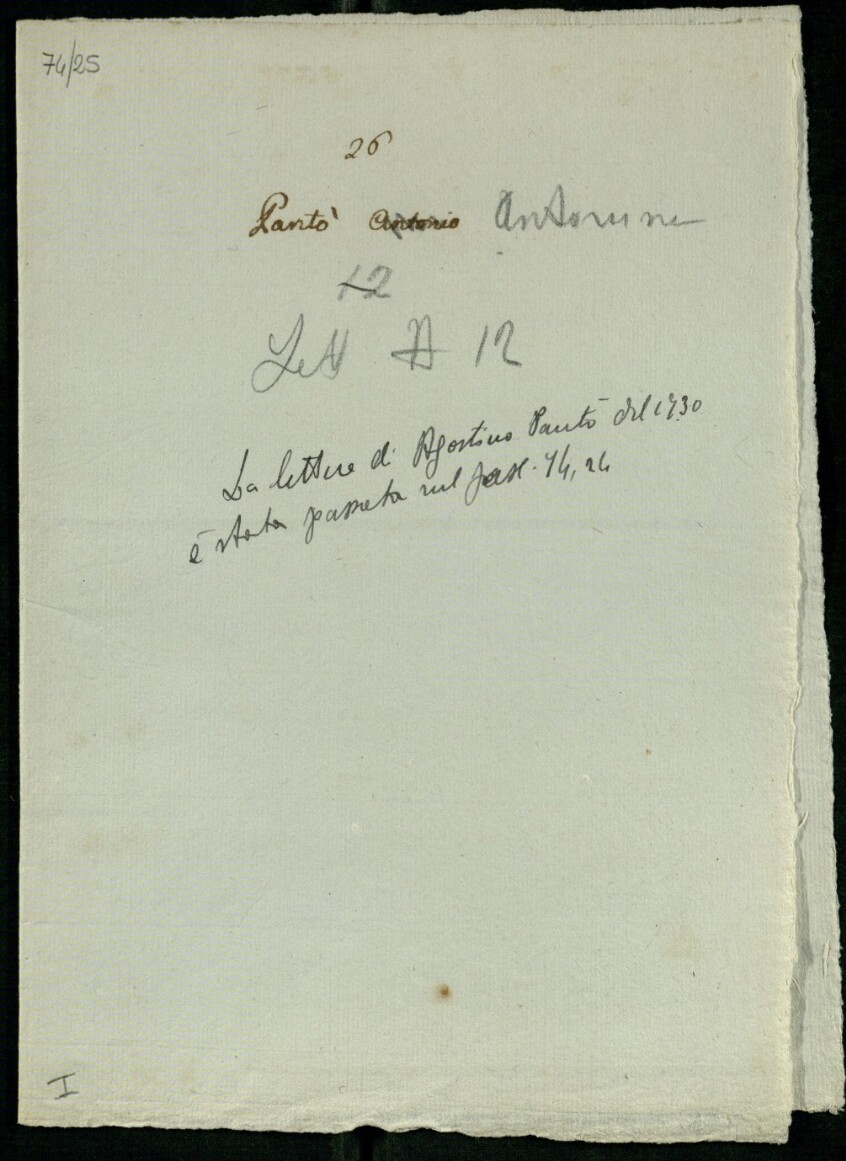 74/25
26
Pantò Antonio Antonino
12
Lett A 12
La lettera di Agostino Pantò del 1730
è stata passata nel fasc. 74, 24
I